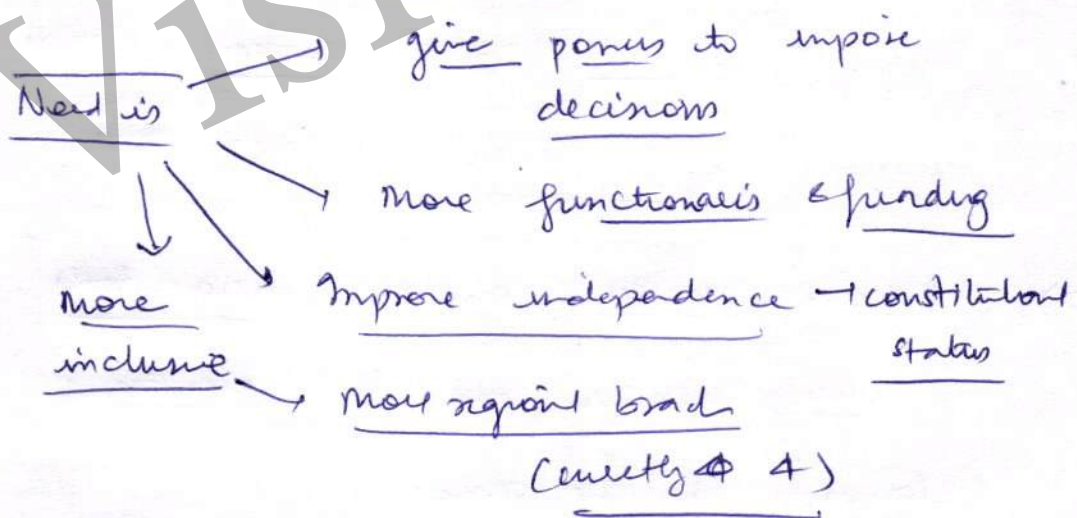 Vis
Need is
give powers to impose
decisions
More functionaries & funding
Improve independence → constitutional
status
More
inclusive
More regional branch
(currently 4)